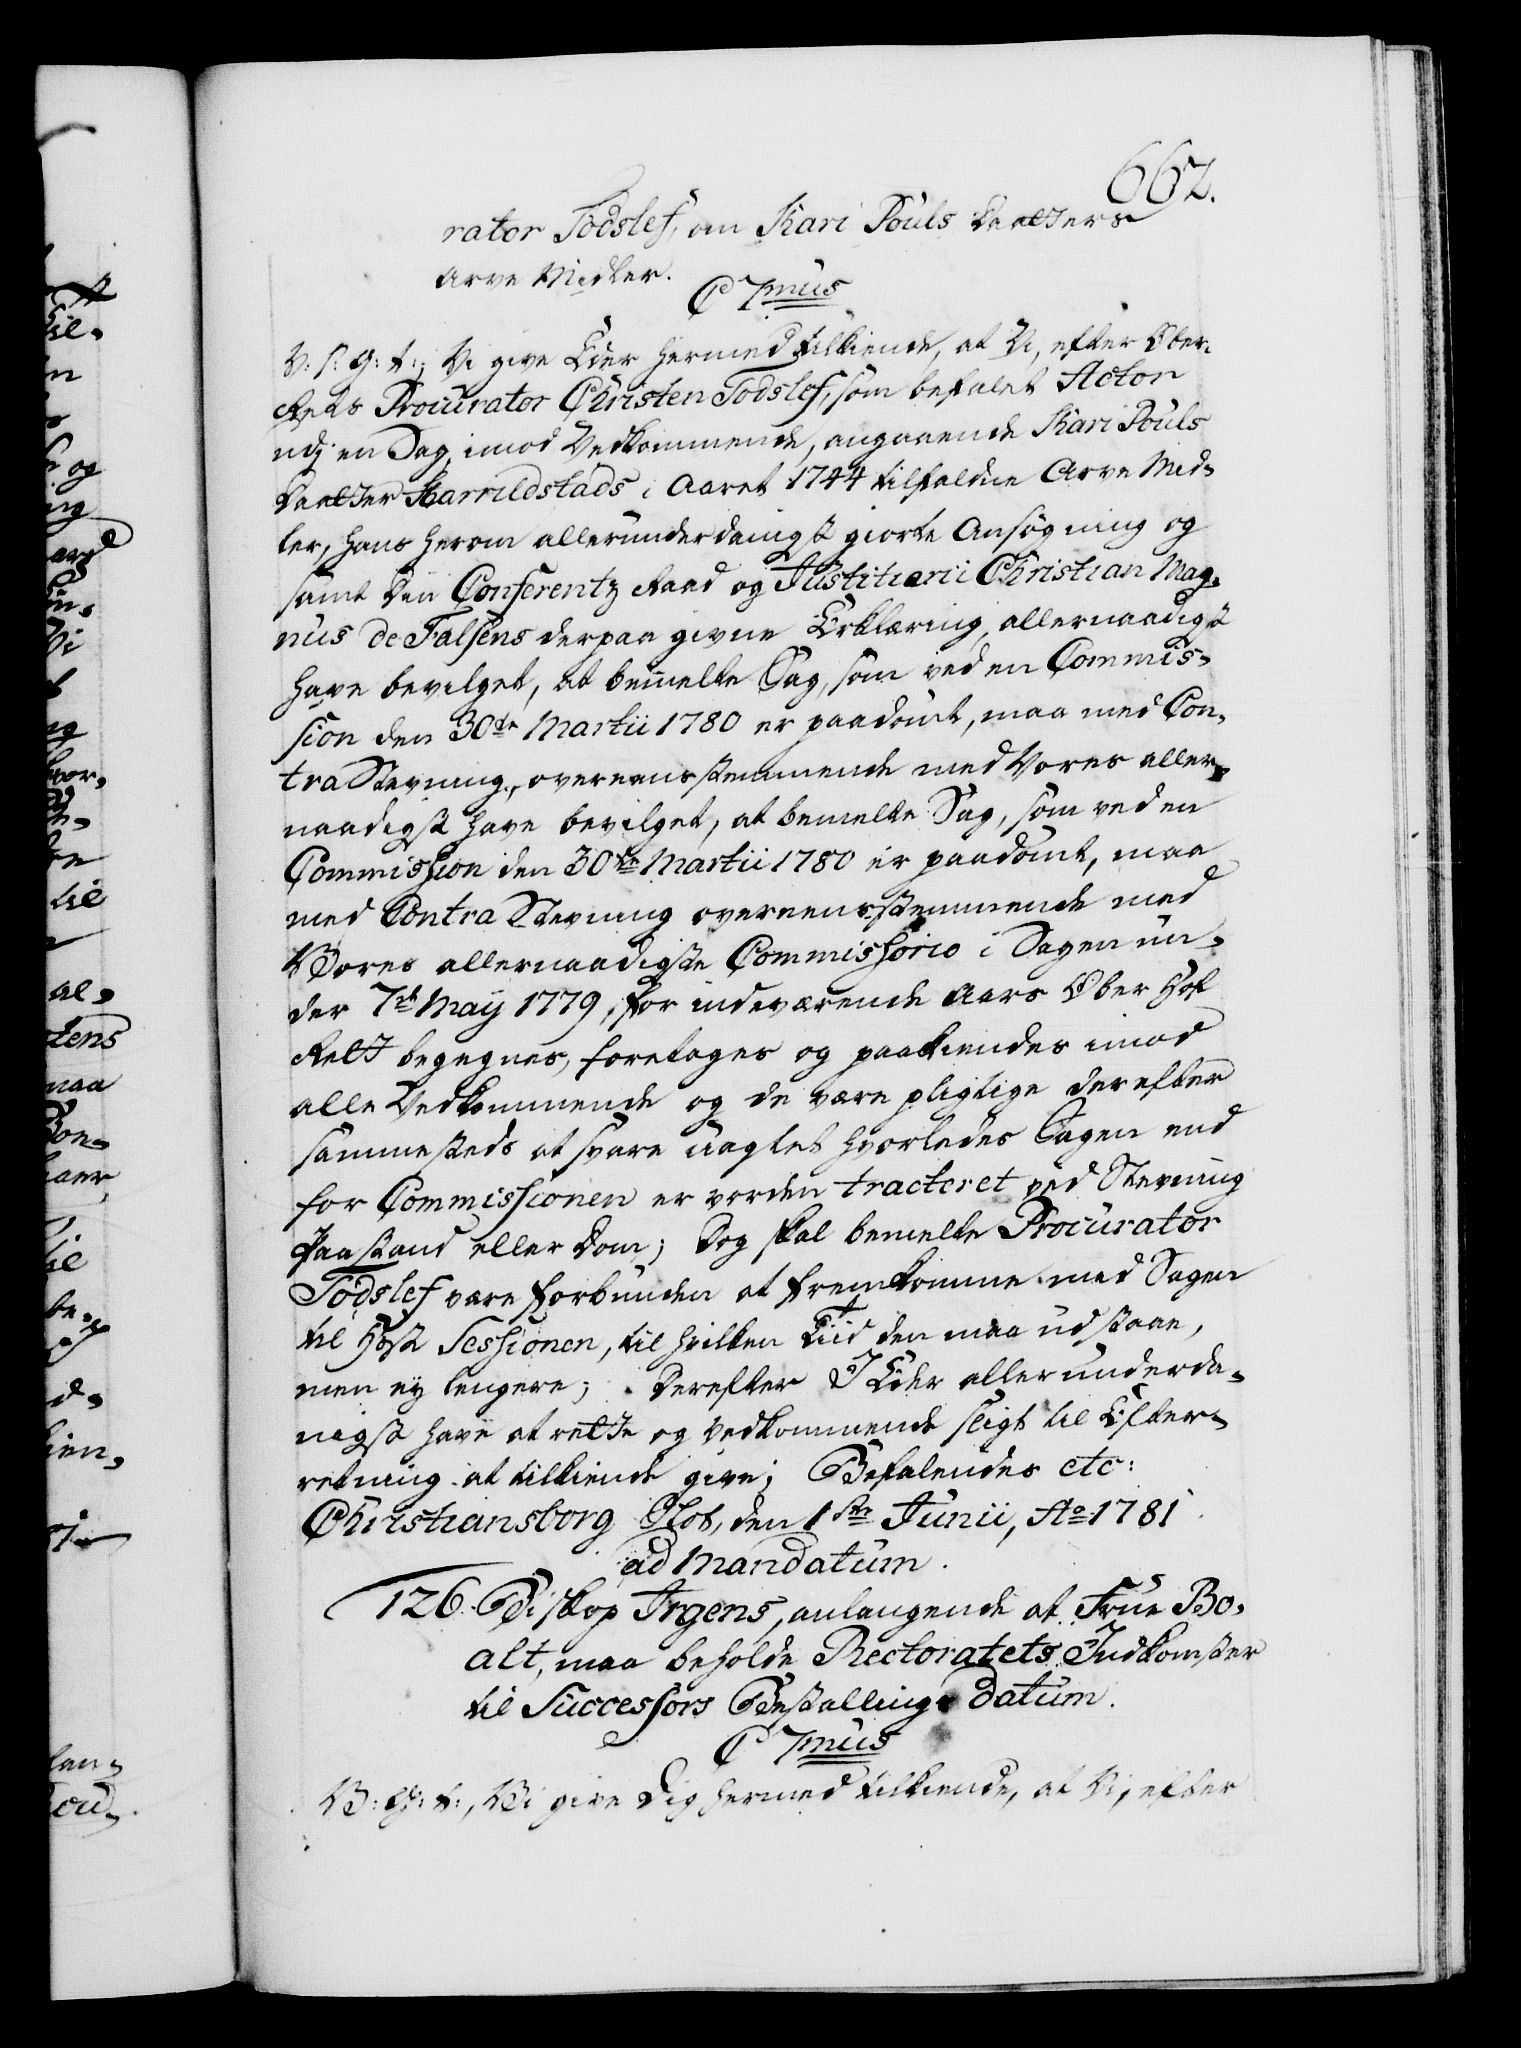 662.
rator Todslef, om Kari Pouls Daatters
Arve Midler.
C 7mus
V: S: G: t:, Vi give Eder hermed tilkiende, at Vi, efter Ober-
Rets Procurator Christen Todslef, som befalet Actor
udj en Sag, imod Vedkommende, angaaende Kari Pouls
Daatter Harrildstads i Aaret 1744 tilfaldne Arve Mid-
ler, hans herom allerunderdanigst giorte Ansøgning og
samt Din Conferentz Raad og Justitiarii Christian Mag-
nus de Falsens derpaa givne Erklæring, allernaadigst
have bevilget, at bemelte Sag, som ved en Commis-
sion den 30te Martii 1780 er paadømt, maa med Con-
tra Stevning, overeensstemmende med Vores aller-
naadigst have bevilget, at bemelte Sag, som ved en
Commission den 30te Martii 1780 er paadømt, maa
med Contra Stevning overeensstemmende med
Vores allernaadigste Commissorio i Sagen un-
der 7de Maij 1779, for indeværende Aars Ober Hof
Rett begegnes, foretages og paakiendes imod
alle Vedkommende og de være pligtige derefter
sammesteds at svare uagtet hvorledes Sagen end
for Commissionen er vorden tracteret ved Stevning
Paastand eller Dom; Dog skal bemelte Procurator
Todslef være forbunden at fremkomme med Sagen
til Høst Sessionen, til hvilken Tiid den maa udstaae,
men ey lengere; Derefter I Eder allerunderda-
nigst have at rette og Vedkommende sligt til Efter-
retning at tilkiende give; Befalendes etc:
Christiansborg Slot, den 1ste Junii, Ao 1781
ad Mandatum.
126. Biskop Irgens, anlangende at Frue Bo-
alt, maa beholde Rectoratets Indkomster
til Successors Bestallings Datum.
C 7mus
V: G: t:, Vi give Dig hermed tilkiende, at Vi, efter